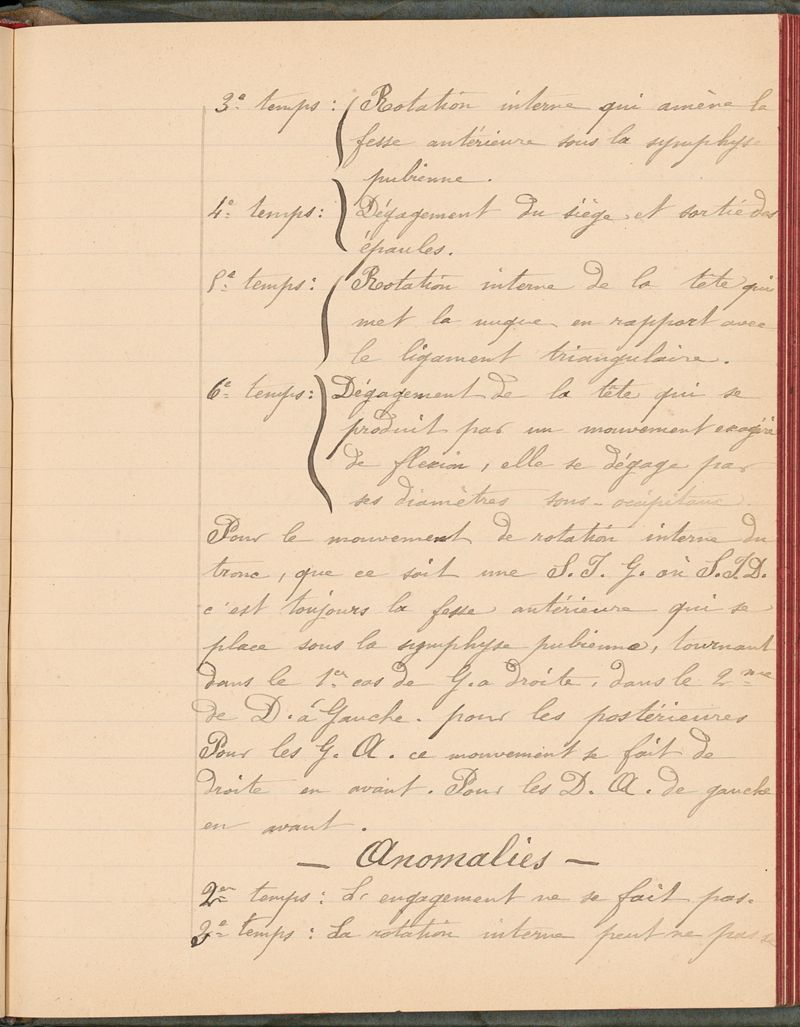 3e temps : Rotation interne qui amène la
fesse antérieure sous la symphyse
pubienne.
4e temps : Dégagement du siège et sortie des
épaules.
5e temps : Rotation interne de la tete qui
met la nuque en rapport avec
le ligament triangulaire.
6e temps : Dégagement de la tête qui se
produit par un mouvement exagéré
de flexion, elle se dégage par
ses diamètres sous-occipitaux
Pour le mouvement de rotation interne du
tronc, que ce soit une S.I.G. où S.I.D.
c'est toujours la fesse antérieure qui se
place sous la symphyse pubienne, tournant
dans le 1er cas de G. a droite, dans le 2me
de D. à Gauche. pour les postérieures
Pour les G. A. ce mouvement se fait de
droite en avant. Pour les D. A. de gauche
en avant.
— Anomalies —
2e temps : L'engagement ne se fait pas.
3e temps : La rotation interne peut ne pas se